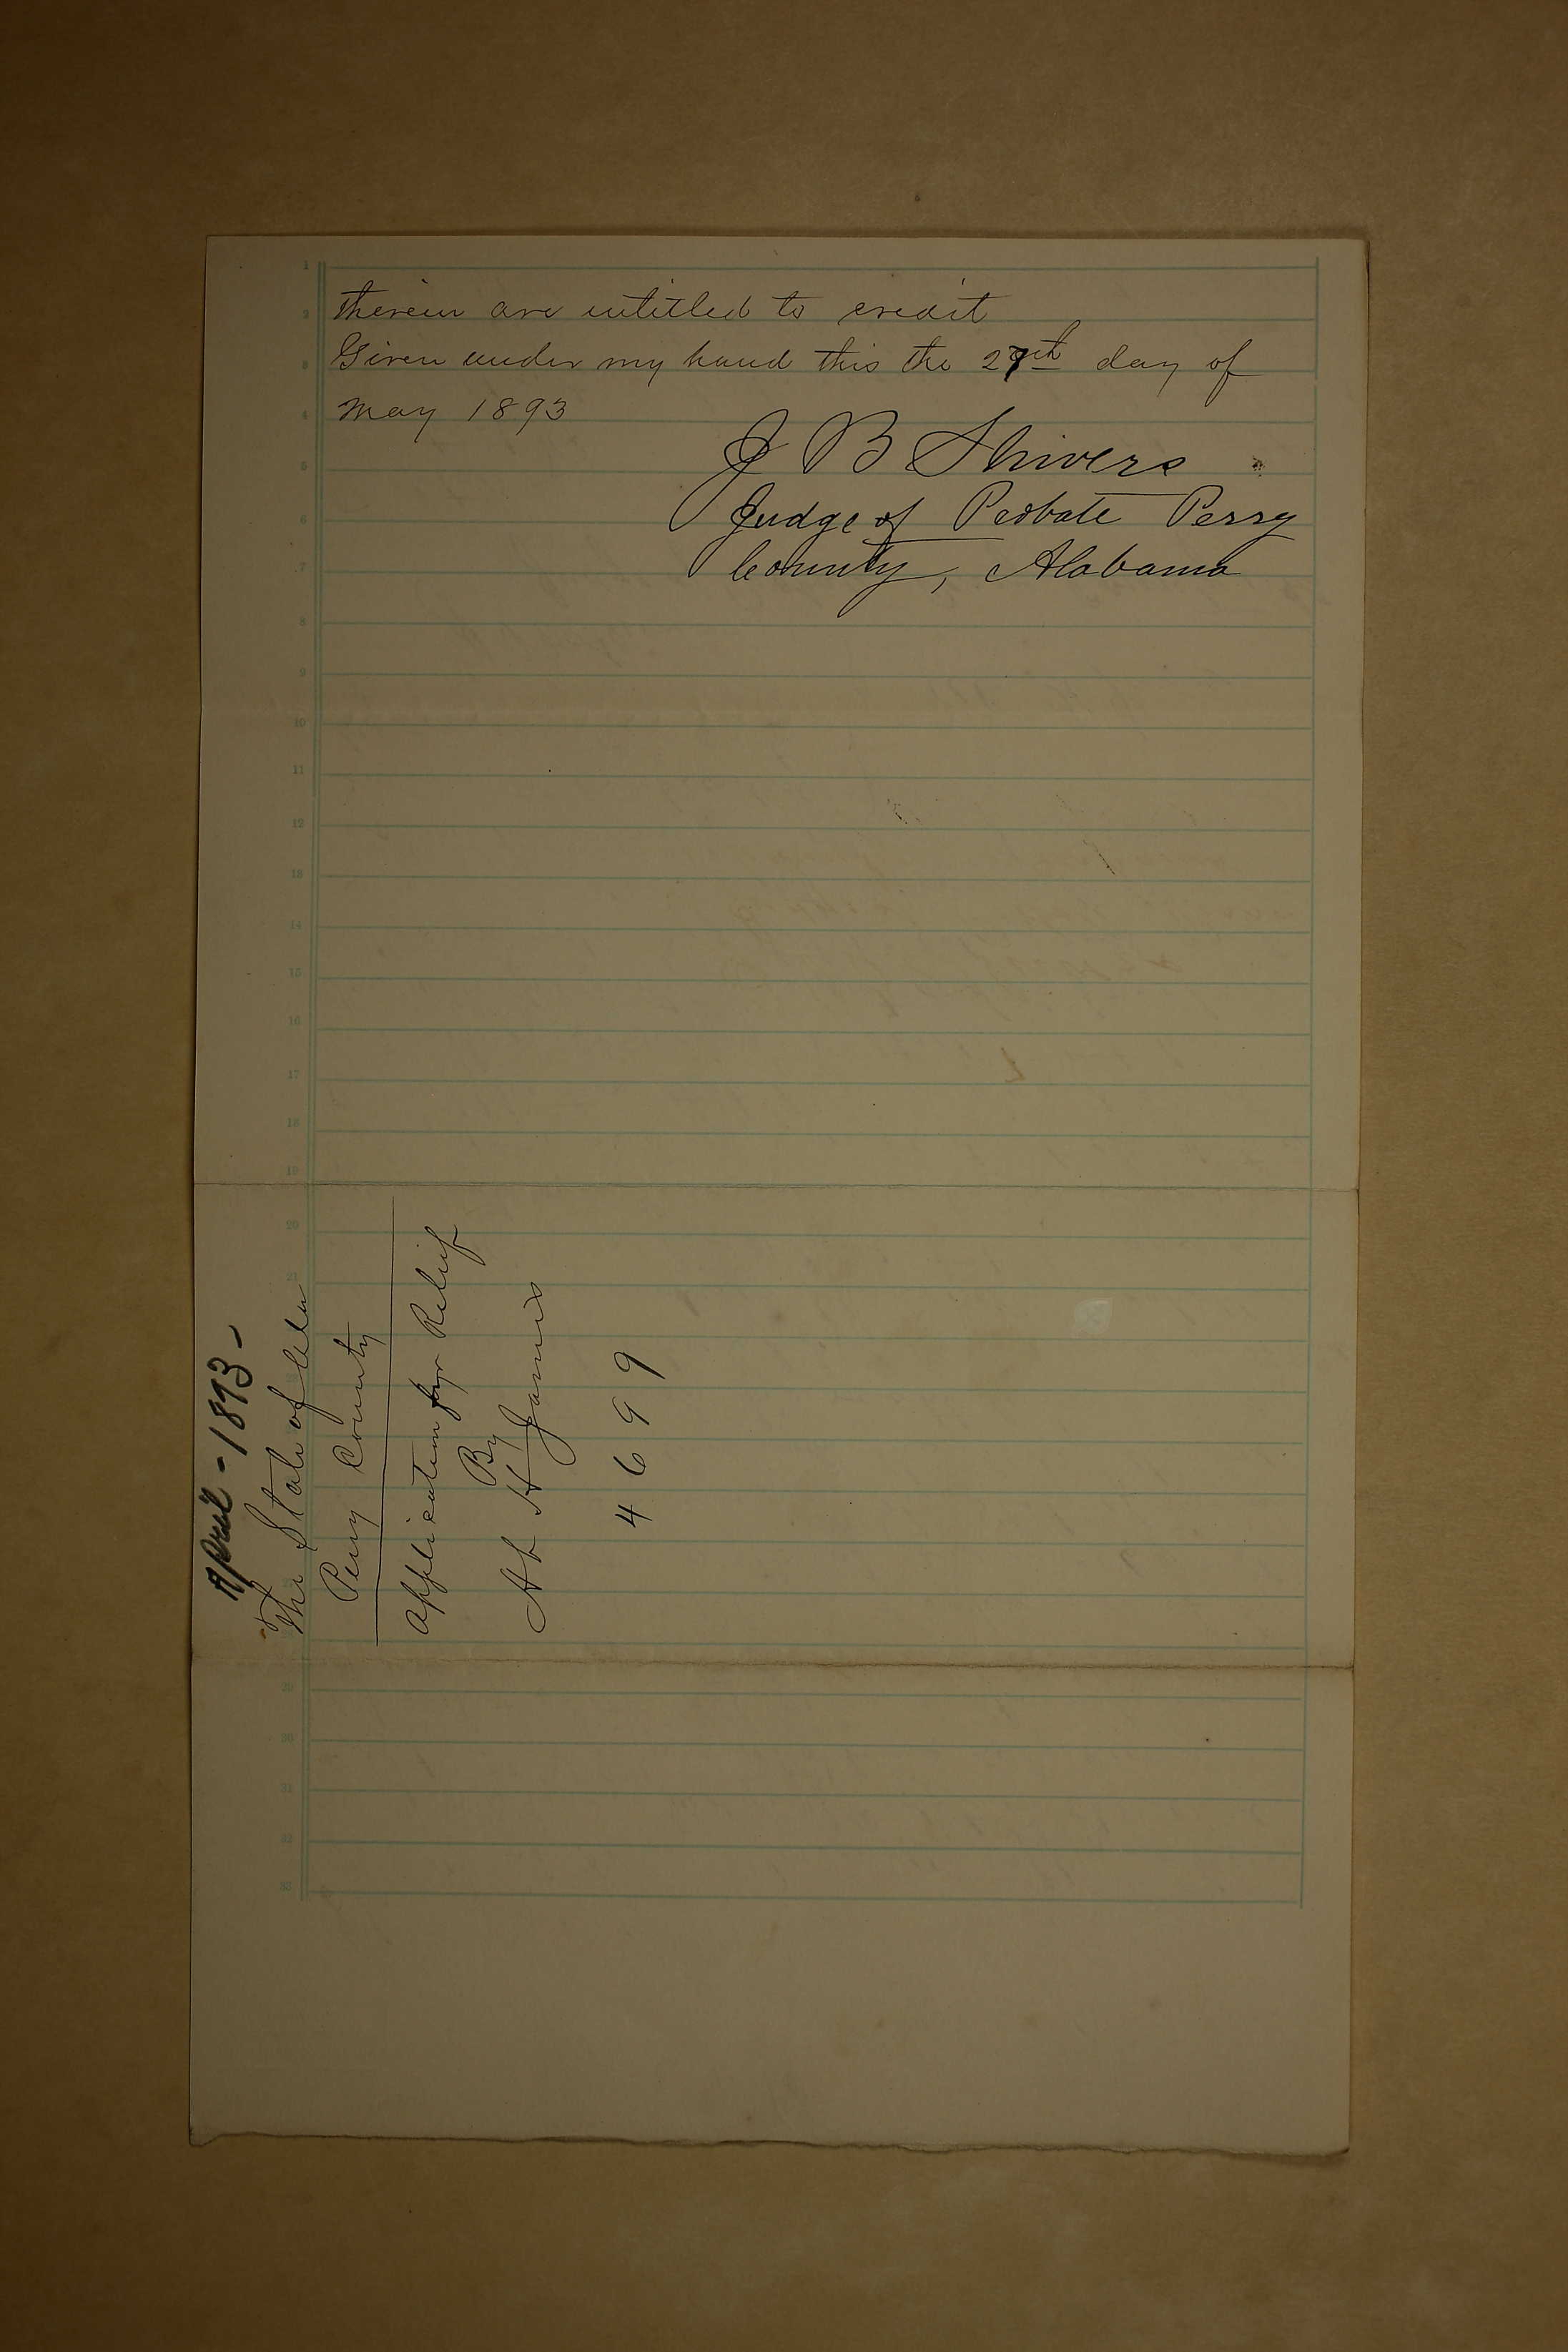 therein are intitled to credit
Given under my hand this the 27th day of
May 1893
J B Shivers
Judge of Probate Perry
County, Alabama
April - 1893 -
The State of Ala
Perry County
Application for Relief
By
Ab H Jamis
4699